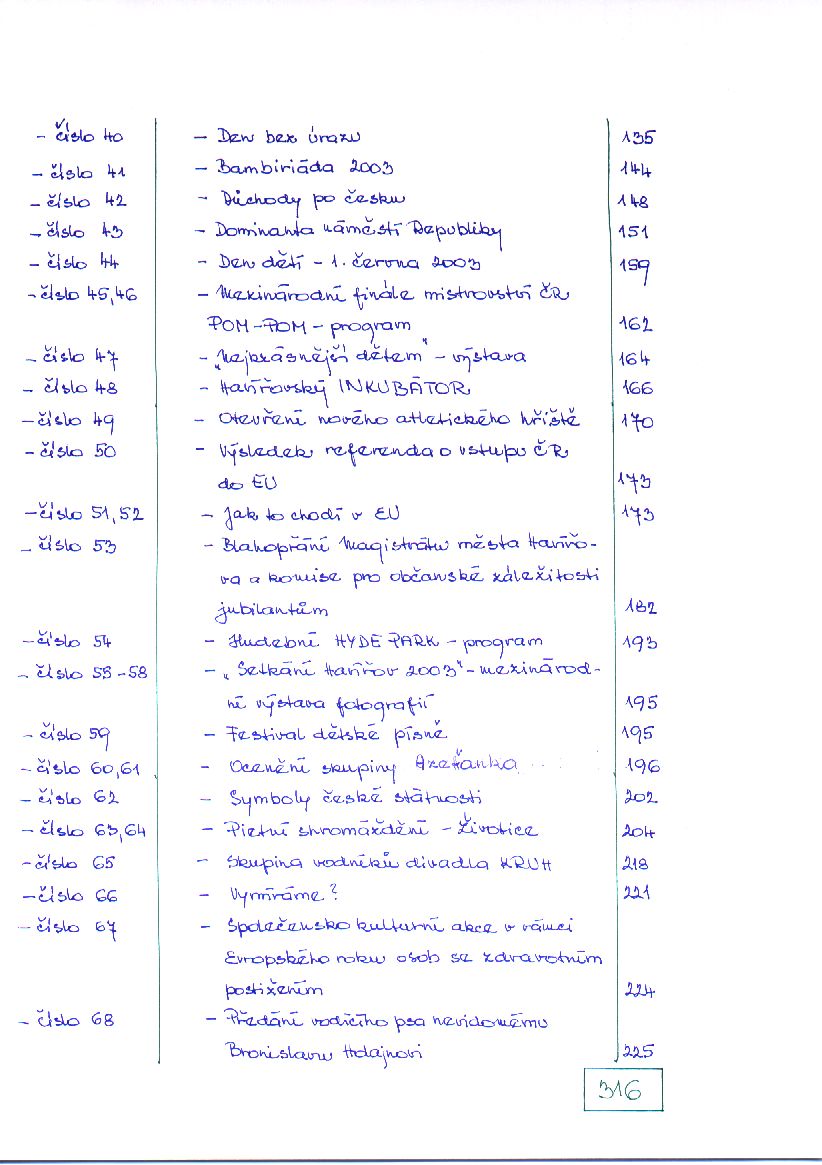 - číslo 40 - Den bez úrazu 135
- číslo 41 - Bambiriáda 2003 144
- číslo 42 - Důchody po česku 148
- číslo 43 - Dominanta náměstí Republiky 151
- číslo 44 - Den dětí - 1. června 2003 159
- číslo 45,46 - Mezinárodní finále mistrovství ČR
POM-POM - program 162
- číslo 47 - „Nejkrásnější dětem" - výstava 164
- číslo 48 - Havířovský INKUBÁTOR 166
- číslo 49 - Otevření nového atletického hřiště 170
- číslo 50 - Výsledek referenda o vstupu ČR
do EU 173
- číslo 51,52 - Jak to chodí v EU 173
- číslo 53 - Blahopřání Magistrátu města Havířo-
va a komise pro občanské záležitosti
jubilantům 182
- číslo 54 - Hudební HYDE PARK - program 193
- číslo 55-58 - „Setkání Havířov 2003" - mezinárod-
ní výstava fotografií 195
- číslo 59 - Festival dětské písně 195
- číslo 60,61 - Ocenění skupiny 196
- číslo 62 - Symboly české státnosti 202
- číslo 63,64 - Pietní shromáždění - Životice 204
- číslo 65 - Skupina vodníků divadla KRUH 218
- číslo 66 - Vymíráme? 221
- číslo 67 - Společensko kulturní akce v rámci
Evropského roku osob se zdravotním
postižením 224
- číslo 68 - Předání vodícího psa nevidomému
Bronislavu Hdajnovi 225
316